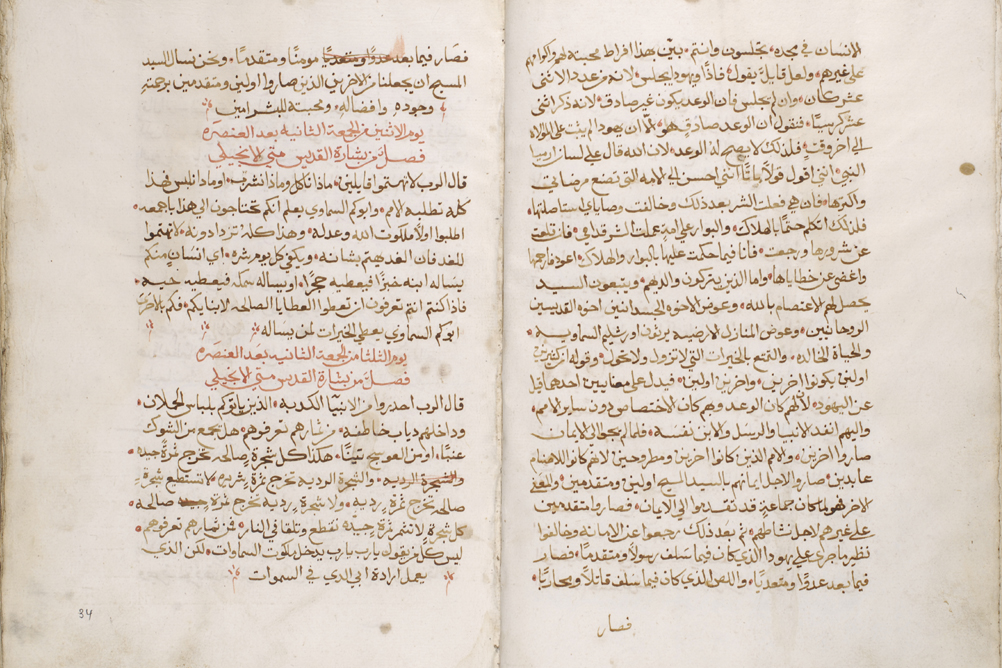 الانسان في مجده تجلسون وانتم بين بهذا افراط محبته لهم واكرامهم
على غيرهم ولعل قايلا يقول فاذا يهودا يجلس لانه من عدد الاثني
عشر كان وان لم يجلس فان الوعد يكون غير صادق لانه ذكر اثني
عشر كرسيا فنقول ان الوعد صادق هو الا ان يهودا لم يثبت على الولاه
الى اخر وقت فلذلك لا يصح له الوعد لان الله قال على لسان ارميا
النبي انني اقول قولا باتا انني احسن الى الامه التي تصنع مرضاتي
والبرها فان هي فعلت الشر بعد ذلك وخالفت وصاياي استاصلتها
فلذلك اتكلم حتما بالهلاك والبوار على امة عملت الشر قدامي فان تابت
عن شرورها ورجعت فانا فيما حكمت عليها بالبوار والهلاك اعود فارحمها
واعفي عن خطاياها واما الذين يتركون والدهم ويتبعون السيد
يحصل لهم الاعتصام بالله وعوض الاخوه الجسدانيين اخوه القديسين
الروحانيين وعوض المنازل الارضيه يرثون اورشليم السماويه
والحياة الخالده والتمتع بالخيرات التي لا تزول ولا تحول وقوله ان كثيرين
اولين يكونوا اخرين واخرين اولين فيدل على معنايين احدها قيل
عن اليهود لانهم كان الوعد وهم كان الاختصاص دون ساير الامم
واليهم انفد الانبيا والرسل والابن نفسه فلما لم يجيوا الى الايمان
صاروا اخرين والامم الذين كانوا اخرين ومطروحين لانهم كانوا للاصنام
عابدين صاروا لاجل ايمانهم بالسيد المسيح اولين ومتقدمين والمعنى
الاخر فهو لما كان جماعة قد تقدموا الى الايمان فصاروا متقدمين
على غيرهم لاجل نشاطهم ثم بعد ذلك رجعوا عن الامانه وخالفوا
نظير ما جرى على يهودا الذي كان فيما سلف رسولا ومتقدما فصار
فيما بعد عدوا ومتعديا واللص الذي كان فيما سلف قاتلا ومحاربا
فصار
فصار فيما بعد عدوا ومتعديا مومنا ومتقدما ونحن نسال السيد
المسيح ان يجعلنا من الاخرين الذين صاروا اولين ومتقدمين برحمته
وجوده وافضاله ومحبته للبشر امين
يوم الاثنين من الجمعة الثانيه بعد العنصره
فصل من بشارة القديس متي الانجيلي
قال الرب لا تهتموا قايلين ماذا ناكل وماذا نشرب او ماذا نلبس فهذا
كله تطلبه الامم وابوكم السماوي يعلم انكم تحتاجون الى هذا باجمعه
اطلبوا اولا ملكوت الله وعدله وهذا كله تزدادونه لا تهتموا
للغد فان الغد يهتم بشانه ويكفي كل يوم شره اي انسان منكم
يساله ابنه خبزا فيعطيه حجرا او يساله سمكه فيعطيه حيه
فاذا كنتم انتم تعرفون ان تعطوا العطايا الصالحه لابنايكم فكم بالاحرى
ابوكم السماوي يعطي الخيرات لمن يساله
يوم الثلثا من الجمعة الثانيه بعد العنصره
فصل من بشارة القديس متي الانجيلي
قال الرب احدروا من الانبيا الكدبه الذين ياتوكم بلباس الحملان
وداخلهم دياب خاطفه من ثمارهم تعرفوهم هل يجمع من الشوك
عنبا او من العوسج تينا هكذا كل شجرة صالحه تخرج ثمرة جيده
والشجرة الرديه والشجرة الرديه تخرج ثمرة شريره لا تستطيع شجرة
صالحه تخرج ثمرة رديه ولا شجرة رديه تخرج ثمرة جيده صالحه
كل شجرة لا تثمر ثمرة جيده تقطع وتلقا في النار فمن ثمارهم تعرفوهم
ليس كل من يقول يارب يارب يدخل ملكوت السماوات لكن الذي
يعمل ارادة ابي الدي في السموات
34